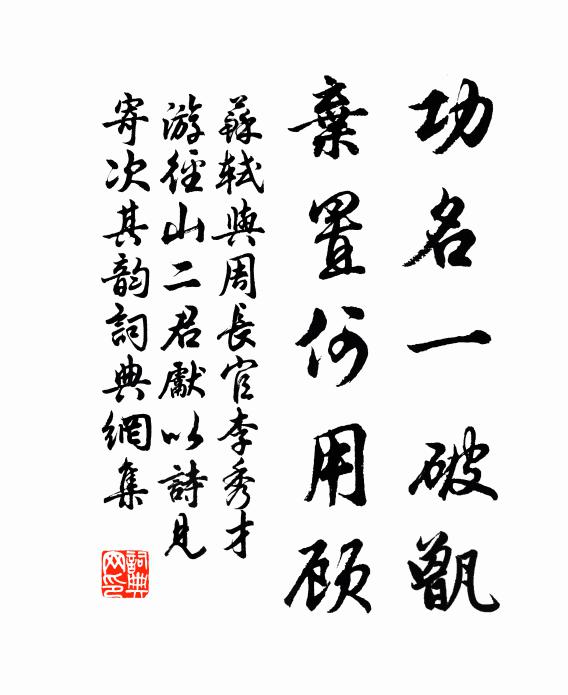 功名一破甑
棄置何用顾
蘇軾與周長官李秀才
游徑山二君獻以詩見
寄次其韵詞典網集
詞典网印